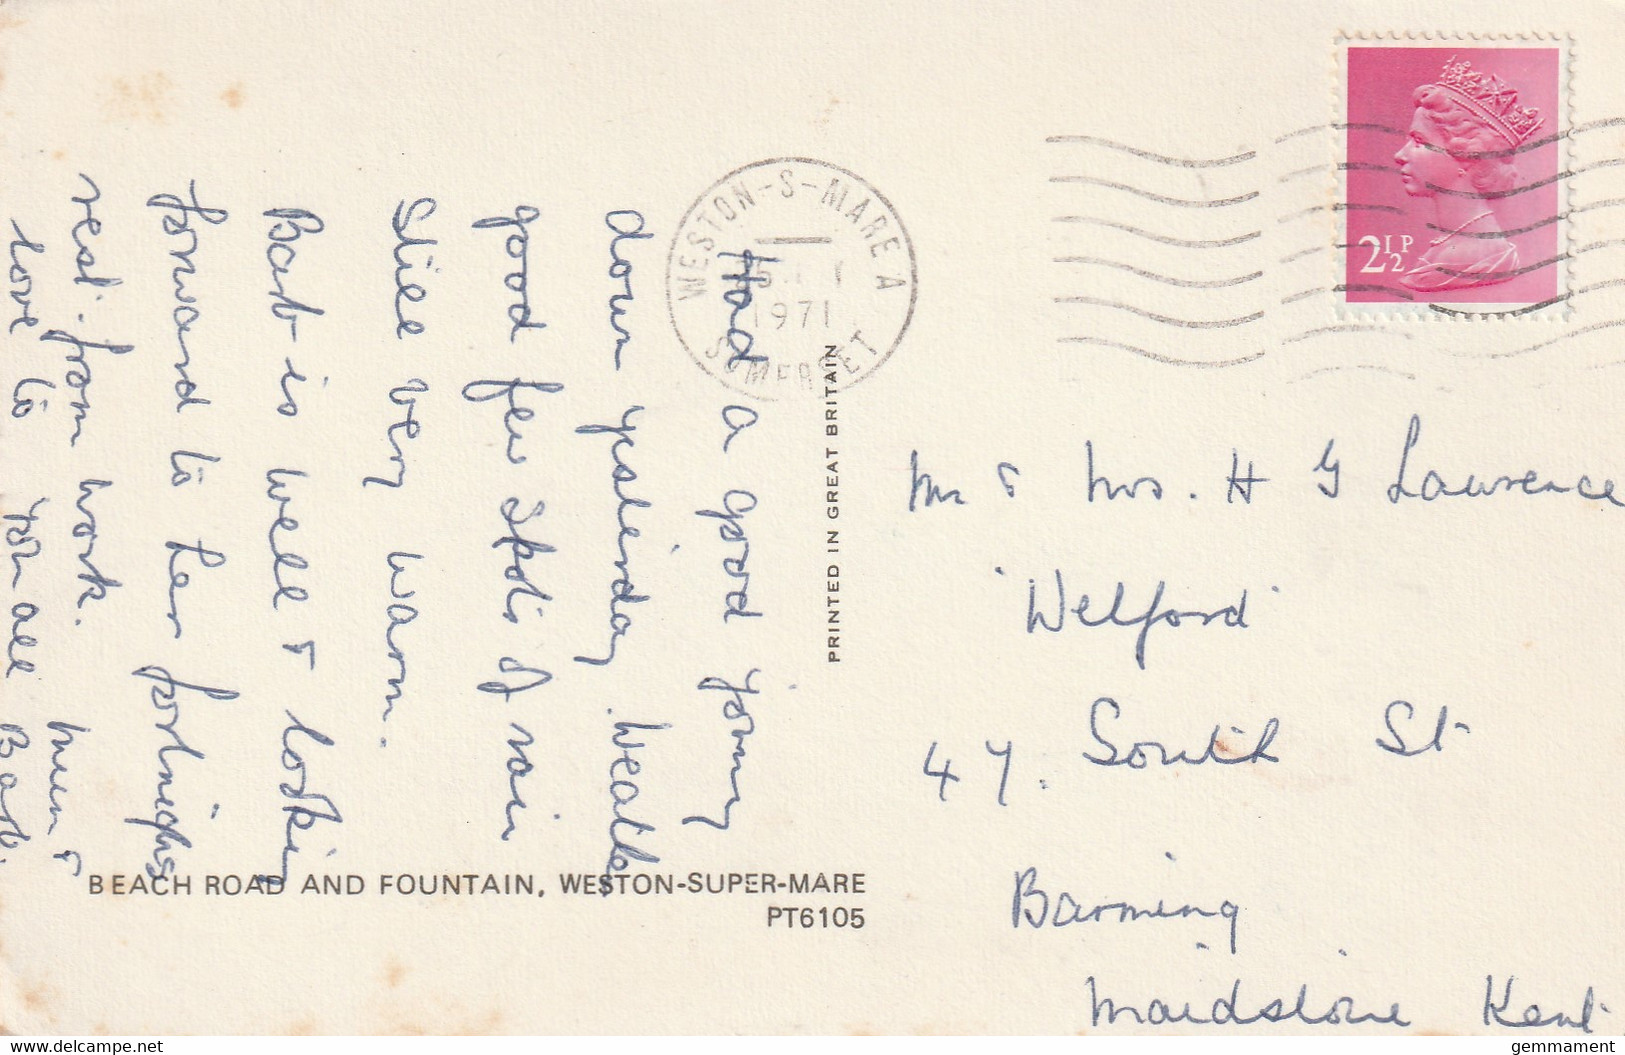 Had a good journy
down yesterday. Weather
good few spots of rain
Still very warm.
Barb is well & looking
forward to her fortnights
rest from work.
love to you all
Mum &
Barb.
Mr & Mrs. H G Lawrence
"Welford"
47. South St
Barming
Maidstone Kent
WESTON-S-MARE A
1971
SOMERSET
2½P
PRINTED IN GREAT BRITAIN
BEACH ROAD AND FOUNTAIN, WESTON-SUPER-MARE
PT6105
www.delcampe.net
gemmament